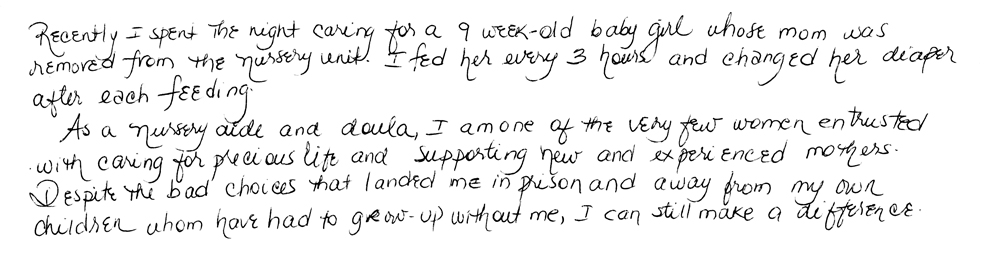 Recently I spent the night caring for a 9 week-old baby girl whose mom was
removed from the nursery unit. I fed her every 3 hours and changed her diaper
after each feeding.
As a nursery aide and doula, I am one of the very few women entrusted
with caring for precious life and supporting new and experienced mothers.
Despite the bad choices that landed me in prison and away from my own
children whom have had to grow-up without me, I can still make a difference.